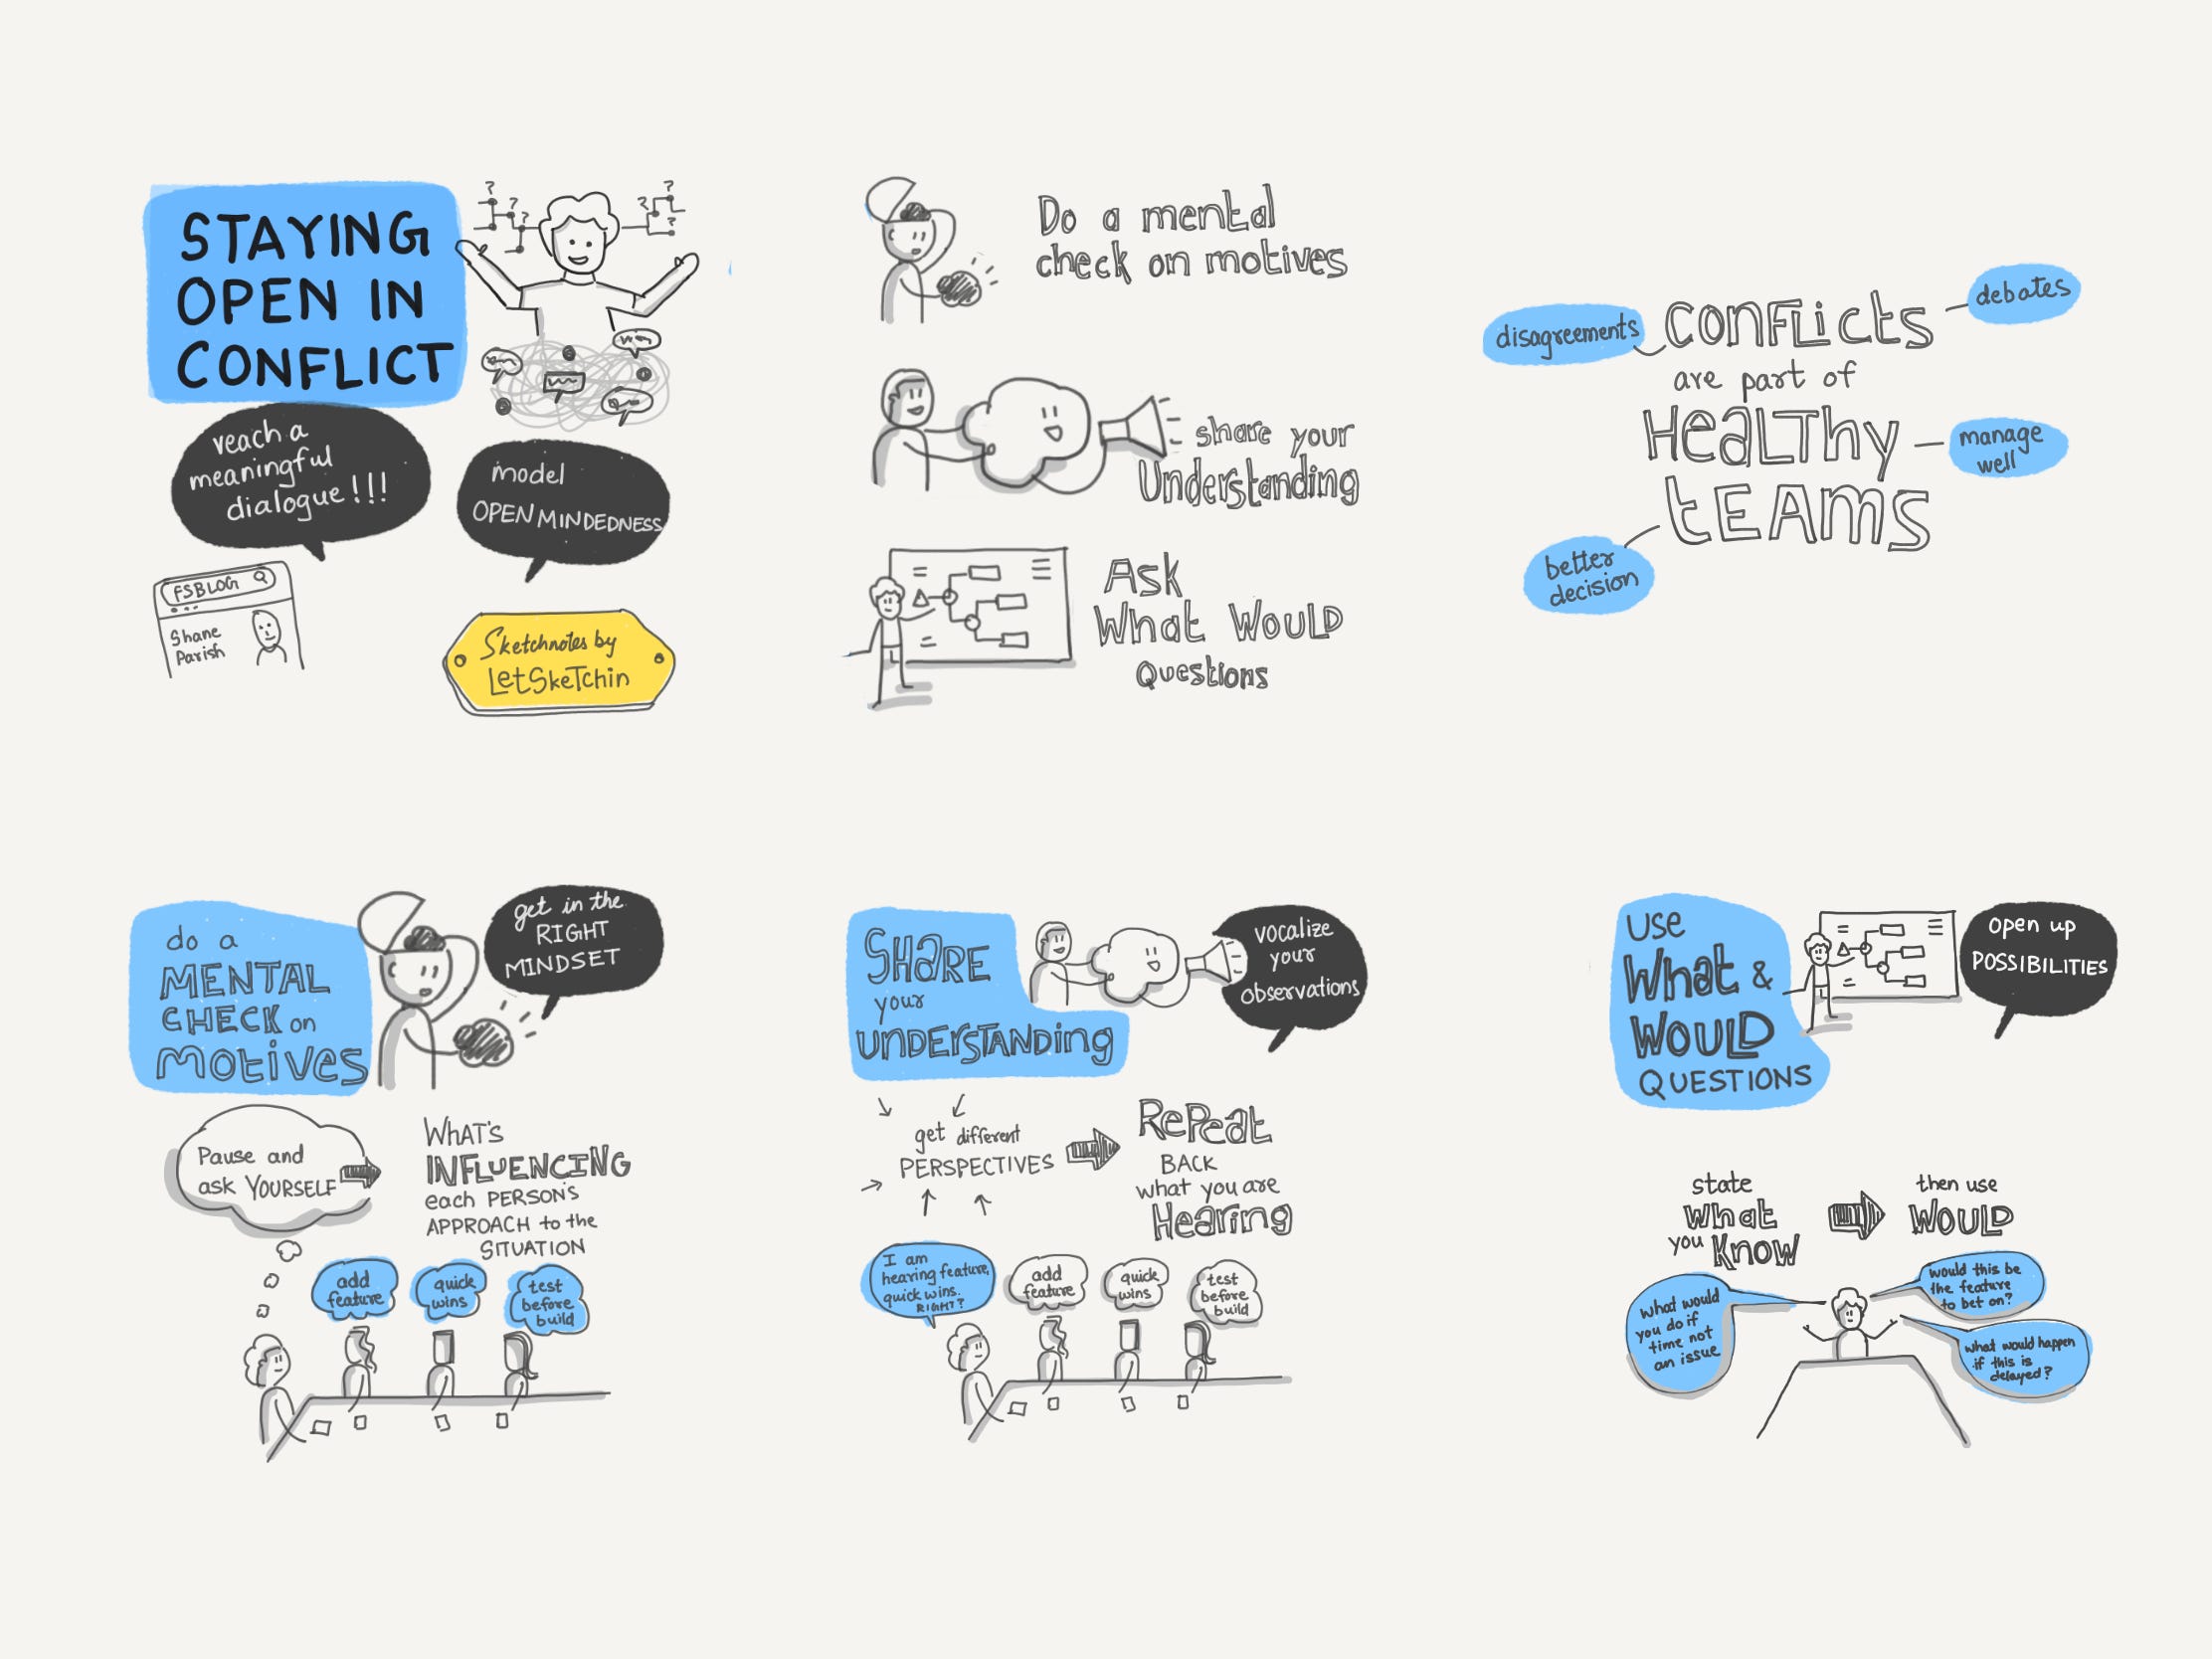 STAYING
OPEN IN
CONFLICT
reach a
meaningful
dialogue!!!
model
OPENMINDEDNESS
FSBLOG
Shane
Parish
Sketchnotes by
LetSkeTchin
Do a mental
check on motives
share your
Understanding
Ask
What Would
Questions
disagreements
debates
conflicts
are part of
Healthy
manage
well
tEAMS
better
decision
do a
MENTAL
CHECK on
Motives
get in the
RIGHT
MINDSET
Pause and
ask YOURSELF
WHAT'S
INFLUENCING
each PERSON'S
APPROACH to the
SITUATION
add
feature
quick
wins
test
before
build
SHARE
your
UNDERSTANDing
vocalize
your
observations
get different
PERSPECTIVES
RePeat
BACK
what you are
Hearing
I am
hearing feature,
quick wins.
RIGHT?
add
feature
quick
wins
test
before
build
USE
What &
WOULD
QUESTIONS
open up
POSSIBILITIES
state
what
you Know
then use
WOULD
what would
you do if
time not
an issue
would this be
the feature
to bet on?
what would happen
if this is
delayed?